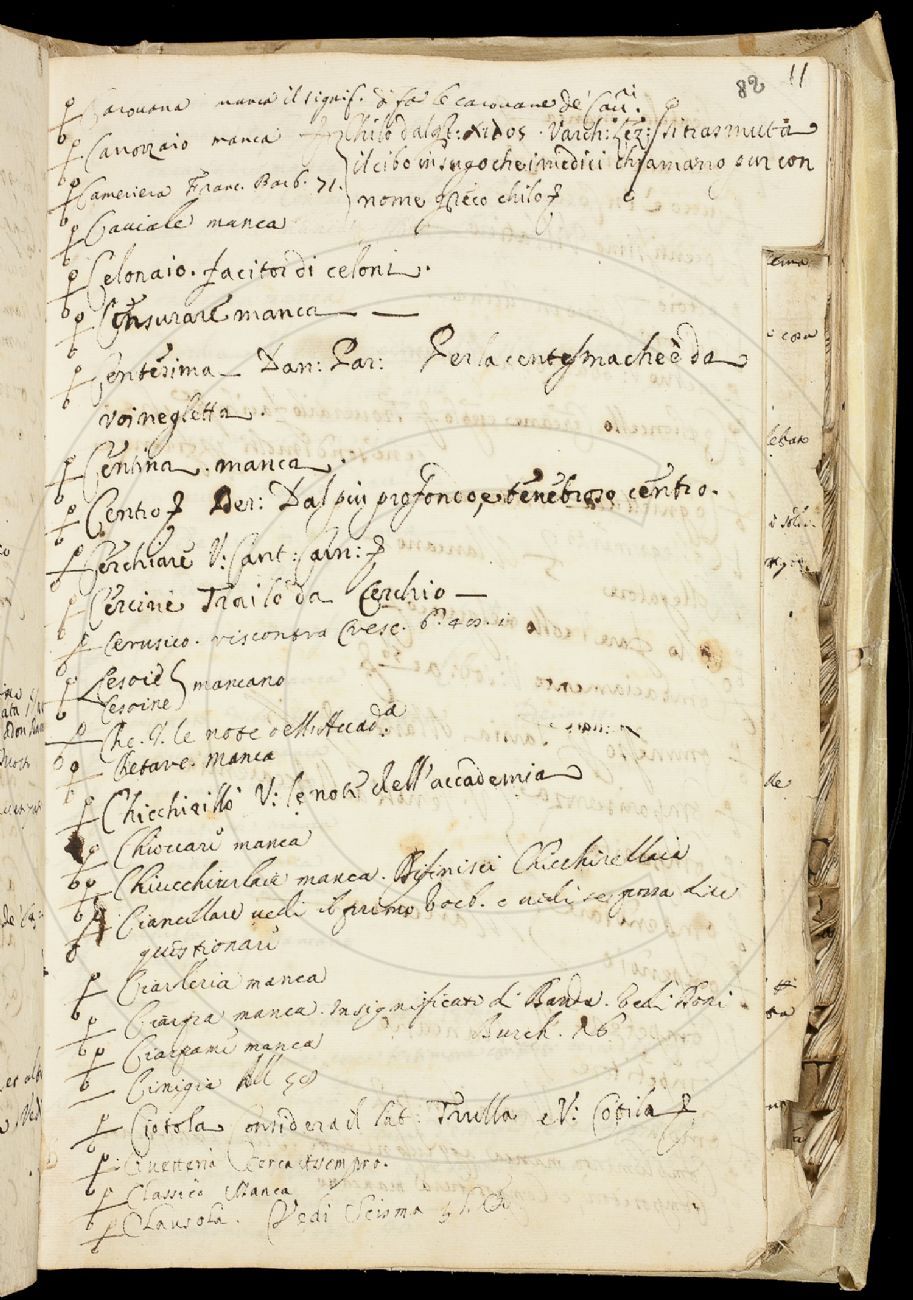 82 11
Carouana manca il signif. di fa le carouane de Cau:ri
Canouaio manca
Cameriera Franc. Barb. 71.
Chilo dal gr: χιλος. Varch: Lez: si trasmuta
il cibo in sugo che i medici chiamano pur con
nome greco chilo
Cauiale manca
Celonaio. facitor di celoni.
Censurare manca
Centesima Dan: Par: Per la centesma che è da
voi negletta
Centina. manca.
Centro Ber: Dal più profondo, e tenebroso centro.
Cerchiare V: Cant: Carn:
Cercine Trailo da Cerchio
Cerusico. riscontra Cresc.
Cesoie
Cesoine mancano
Che. V. le note dell'Accad.a
Chetare. manca
Chicchirillò V: le note dell'accademia
Chioccare manca
Chiucchiurlaia manca. Difinisci Chicchirellaia
Ciancellare uedi il primo Bocc. e uedi se possa dire
questionare
Ciarleria manca
Ciarpa manca. in significato di Banda. Vedi Doni
Burch. 26
Ciarpame manca
Cinigia All 58
Ciotola considera il Lat: Trulla e V: Cotila
Ciuetteria Cerca esempro.
Classico Manca
Clausola. Vedi Scisma